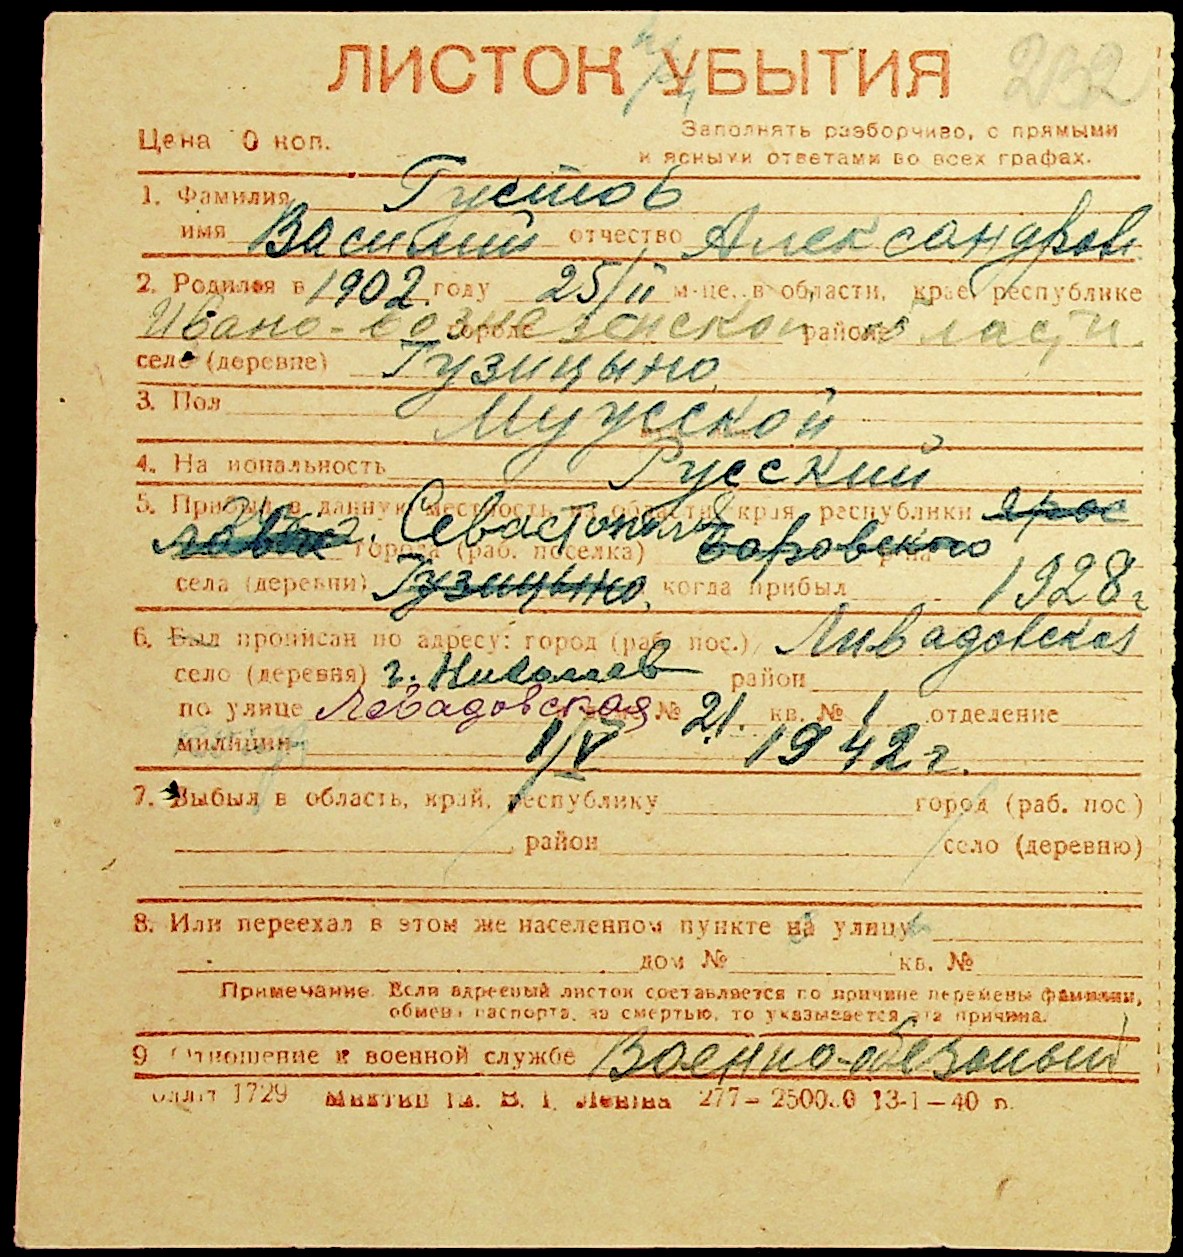 232
ЛИСТОК УБЫТИЯ
Цена 0 коп.
Заполнять разборчиво, с прямыми
и ясными ответами во всех графах.
1. Фамилия Густов
имя Василий отчество Александров
2. Родился в 1902 году 25/II м-це, в области, крае, республике
Ивано-вознезенской области
городе районе
село (деревне) Гузицыно
3. Пол Мужской
4. Национальность Русский
5. Прибыл в данную местность из области, края, республики Ярос
лавск г. Севастополя города (раб. поселка) Боровского р-на
села (деревни) Гузицыно, когда прибыл 1928 г
6. Был прописан по адресу: город (раб. пос.) Ливадовская
село (деревня) г. Николаев район
по улице Левадовская № 21. кв. № 1 отделение
милиции 1/V 1942 г.
7. Выбыл в область, край, республику город (раб. пос.)
район село (деревню)
8. Или переехал в этом же населенном пункте на улицу
дом № кв. №
Примечание. Если адресный листок составляется по причине перемены фамилии,
обмена паспорта, за смертью, то указывается эта причина.
9. Отношение к военной службе Военнообезоный
1729 им. В. І. Леніна 277— 13-1—40 р.